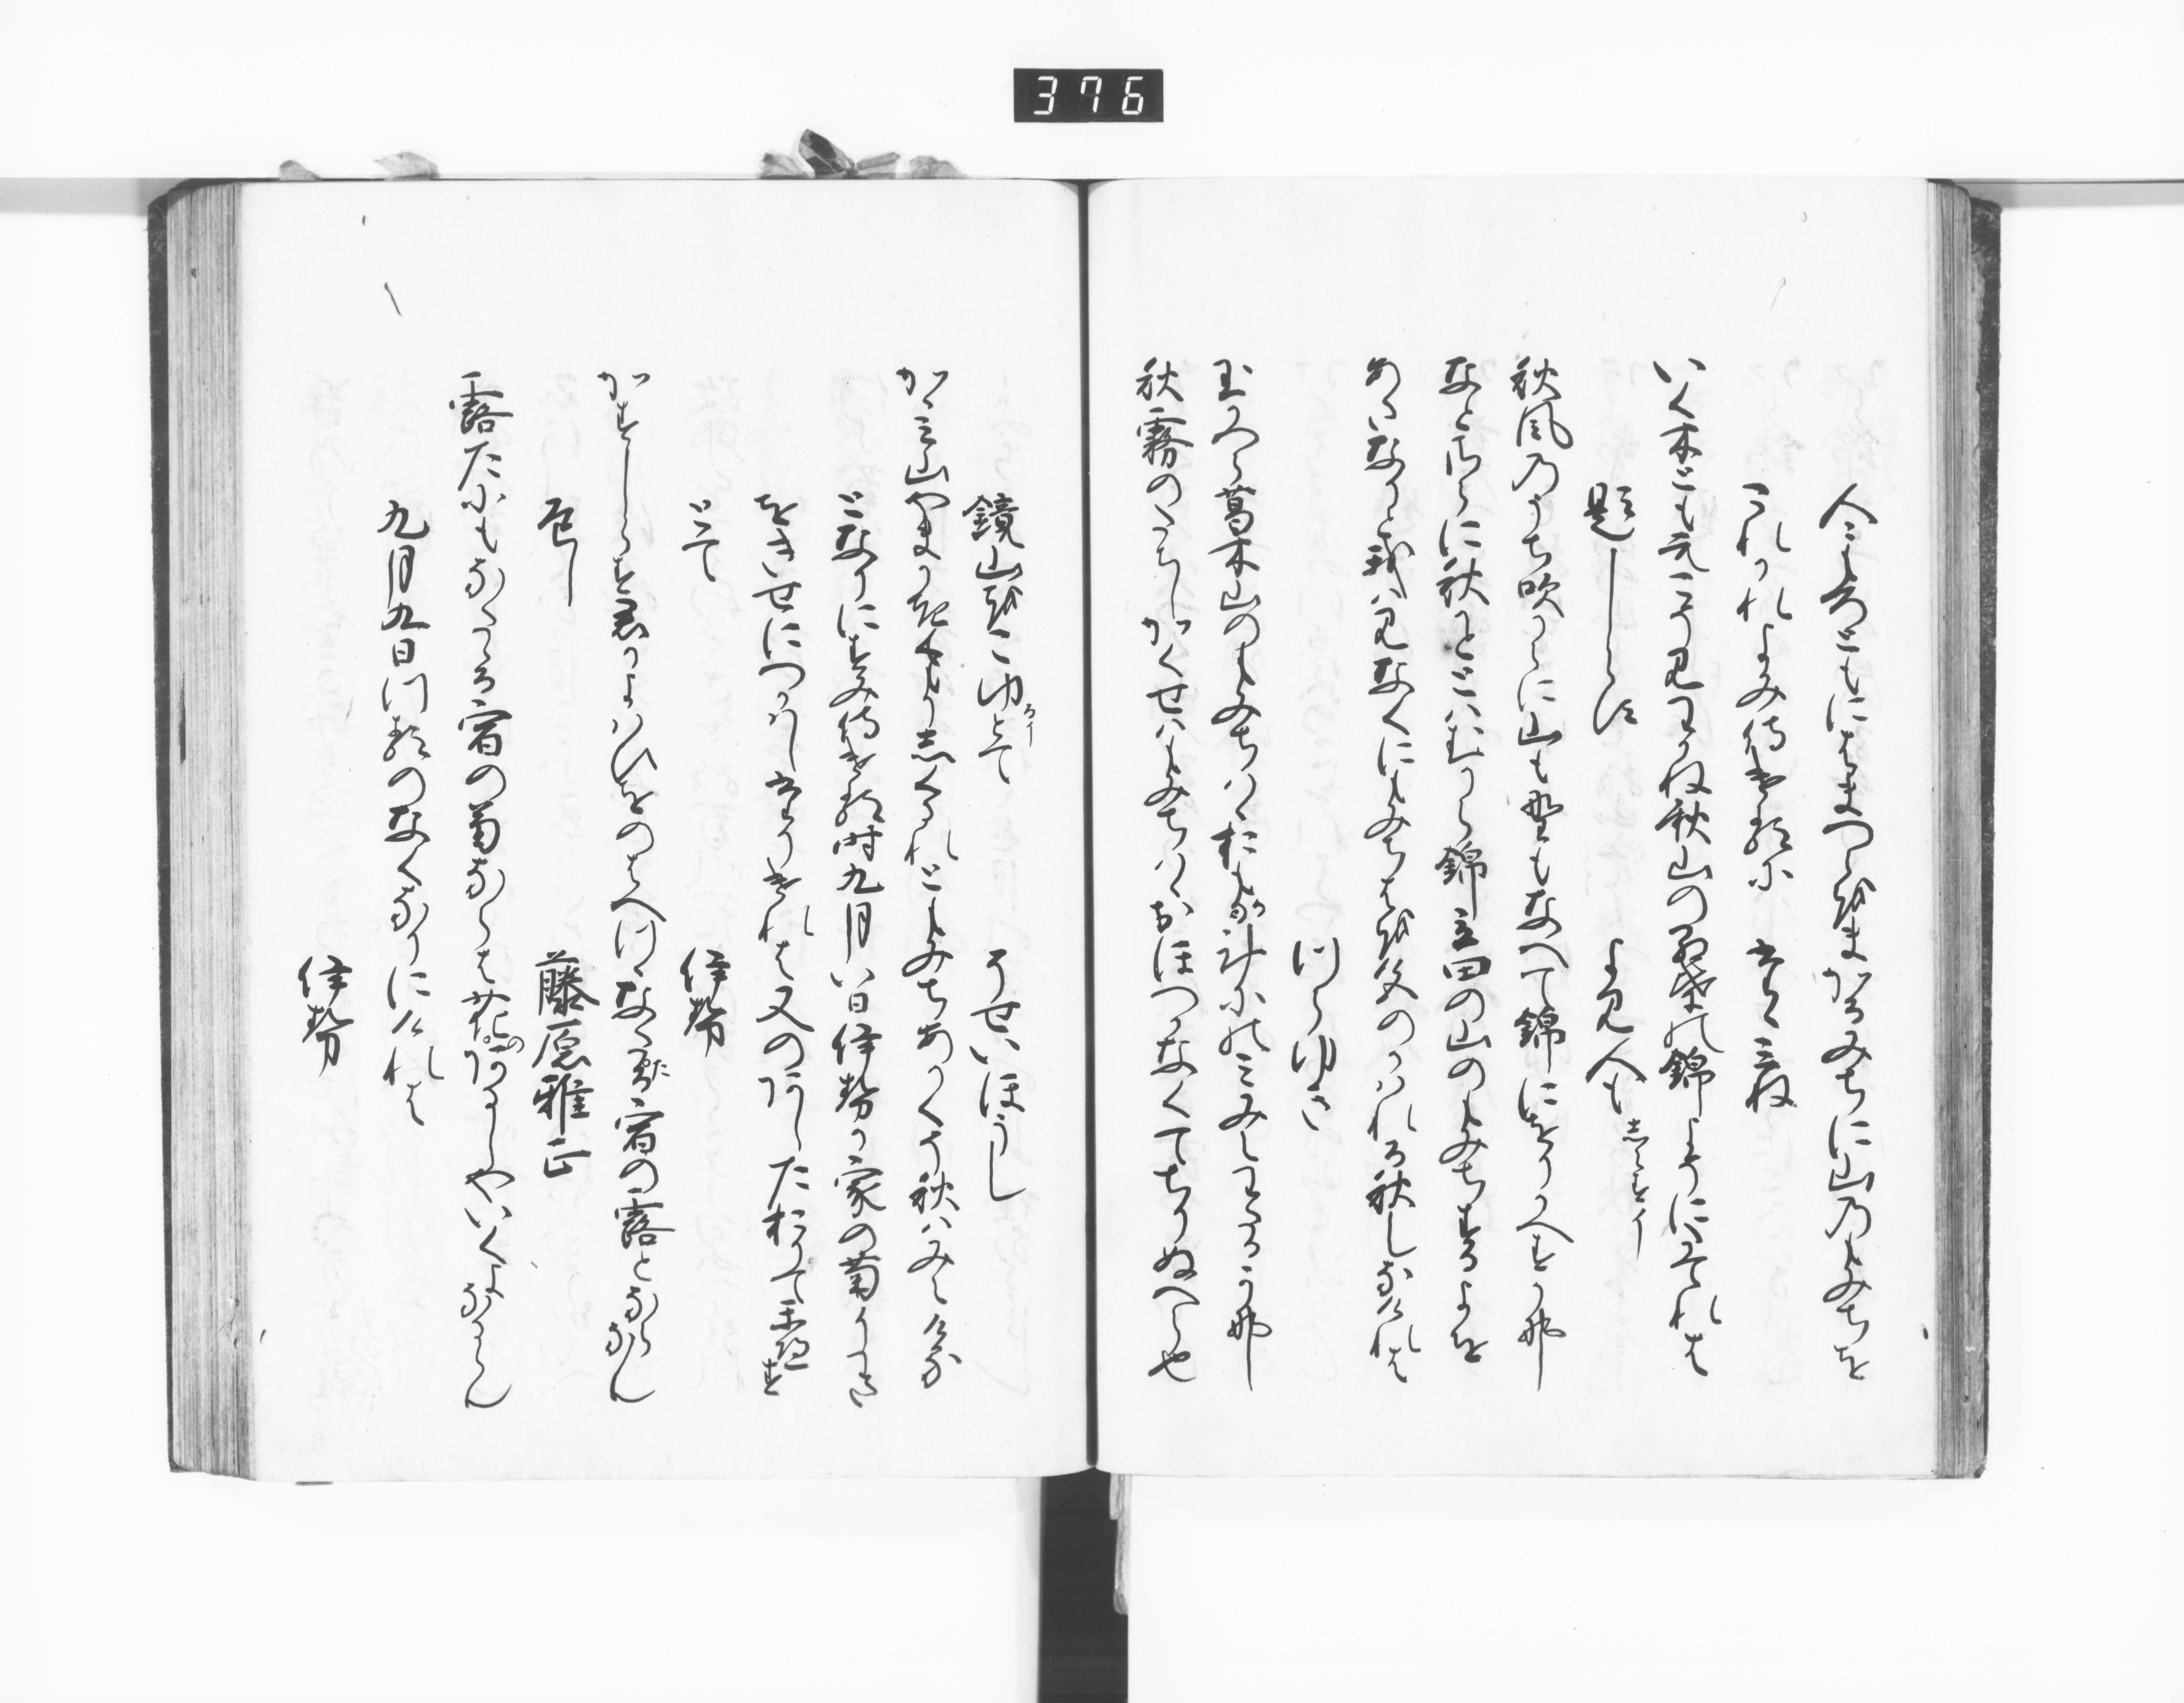 376
人々もろともにはまつらをまかるみちに山乃もみちを
これかれよみ侍けるに　たゝみね
いく木とも元こそ見わかね秋山のもみちの錦よそにたてれは
題しらす　よみ人も しらすイ
秋風乃うち吹からに山も野もなへて錦にをりかへすかな
なとさらに秋かとゝはむからに錦立田の山のもみちするよを
あたなりと我は見なくにもみちはを色のかはれる秋しなけれは
つらゆき
玉かつら葛木山のもみちはゝおもかけにのみみえわたるかな
秋霧のたちしかくせはもみちはゝおほつかなくてちりぬへら也
鏡山をこゆとて　そせいほうし
かゝみ山やまかきくもりしくるれともみちあかくそ秋はみえける
となりにすみ侍ける時九月八日伊勢か家の菊にわた
をきせにつかはしたりけれは又のあしたおりてかへす
とて　伊勢
かすしらす君かよはひをのはへつゝなたゝる宿の露とならなん
返し　藤原雅正
露たにもなたゝる宿の菊ならは花のあるしやいくよなるらん
九月九日つるのなくなりにけれは
伊勢